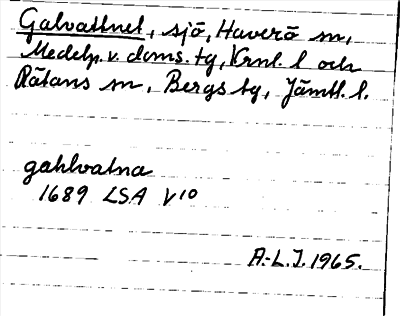 Galvattnet, sjö, Haverö sn,
Medelp. v. doms. tg, Vrnl. l och
Rätans sn, Bergs tg, Jämtl. l.
gahlvatna
1689 LSA V10
A.-L.J. 1965.